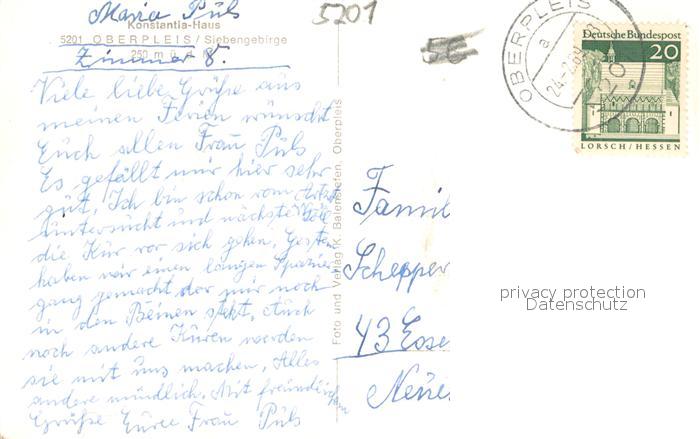 Maria Püls
Konstantia-Haus
5201 OBERPLEIS / Siebengebirge
250 m ü.
Zimmer 8.
Viele liebe Grüße aus
meinen Ferien wünscht
Euch allen Frau Püls
Es gefällt mir hier sehr
gut. Ich bin schon vom Arzt
untersucht und nächste
die Kur vor sich gehen. Gestern
haben wir einen langen Spazier-
gang gemacht der mir noch
in den Beinen stekt. Auch
noch andere Küren werden
sie mit uns machen. Alles
andere mündlich. Mit freundlichen
Grüße Eure Frau Püls
5201
Foto und Verlag K. Oberpleis
OBERPLEIS
a
Deutsche Bundespost
20
LORSCH/HESSEN
Famil
Schepper
43 Esse
Neue
privacy protection
Datenschutz